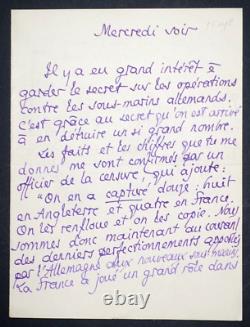 Mercredi soir
Il y a eu grand intérêt à
garder le secret sur les opérations
contre les sous-marins allemands.
C'est grâce au secret qu'on est arrivé
à en détruire un si grand nombre.
Les faits et les chiffres que tu me
donnes me sont confirmés par un
officier de la censure, qui ajoute:
"On en a capturé douze: huit
en Angleterre et quatre en France.
On les renfloue et on les copie. Nous
sommes donc maintenant au courant
des derniers perfectionnements apportés
par l'Allemagne aux nouveaux sous-marins.
La France a joué un grand rôle dans